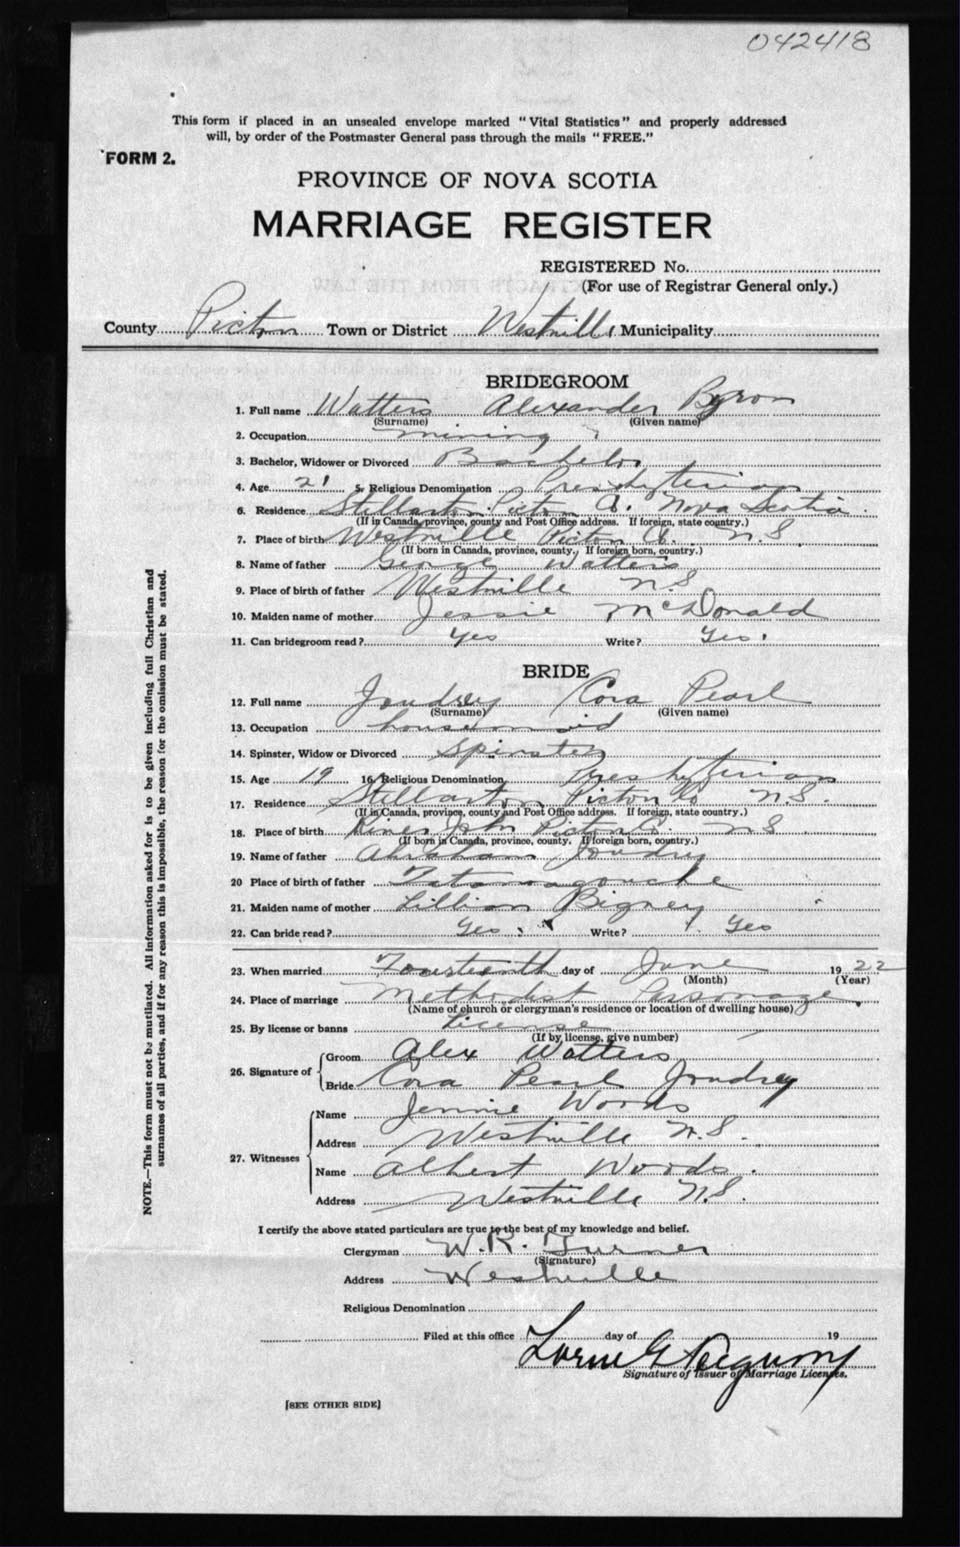 042418
This form if placed in an unsealed envelope marked "Vital Statistics" and properly addressed
will, by order of the Postmaster General pass through the mails "FREE."
FORM 2.
PROVINCE OF NOVA SCOTIA
MARRIAGE REGISTER
REGISTERED No.
(For use of Registrar General only.)
County Pictou Town or District Westville Municipality
BRIDEGROOM
1. Full name Watters Alexander Byron
(Surname) (Given name)
2. Occupation mining
3. Bachelor, Widower or Divorced Bachelor
4. Age 21 5. Religious Denomination Presbyterian
6. Residence Stellarton Pictou Co. Nova Scotia
(If in Canada, province, county and Post Office address. If foreign, state country.)
7. Place of birth Westville Pictou Co. N.S.
(If born in Canada, province, county. If foreign born, country.)
8. Name of father George Watters
9. Place of birth of father Westville N.S
10. Maiden name of mother Jessie McDonald
11. Can bridegroom read? Yes Write? Yes.
BRIDE
12. Full name Joudrey Cora Pearl
(Surname) (Given name)
13. Occupation housemaid
14. Spinster, Widow or Divorced Spinster
15. Age 19 16. Religious Denomination Presbyterian
17. Residence Stellarton Pictou Co N.S.
(If in Canada, province, county and Post Office address. If foreign, state country.)
18. Place of birth River John Pictou Co. N S
(If born in Canada, province, county. If foreign born, country.)
19. Name of father Abraham Joudrey
20 Place of birth of father Tatamagouche
21. Maiden name of mother Lillian Bigney
22. Can bride read? Yes Write? Yes
23. When married Fourteenth day of June 1922
(Month) (Year)
24. Place of marriage Methodist Parsonage.
(Name of church or clergyman's residence or location of dwelling house)
25. By license or banns License
(If by license, give number)
26. Signature of Groom Alex Watters
Bride Cora Pearl Joudrey
27. Witnesses Name Jennie Woods
Address Westville N.S.
Name Albert Woods.
Address Westville N.S.
I certify the above stated particulars are true to the best of my knowledge and belief.
Clergyman W. R. Turner
(Signature)
Address Westville
Religious Denomination
Filed at this office day of 19
Lorne G
Signature of Issuer of Marriage Licenses.
[SEE OTHER SIDE]
NOTE.—This form must not be mutilated. All information asked for is to be given including full Christian and
surnames of all parties, and if for any reason this is impossible, the reason for the omission must be stated.